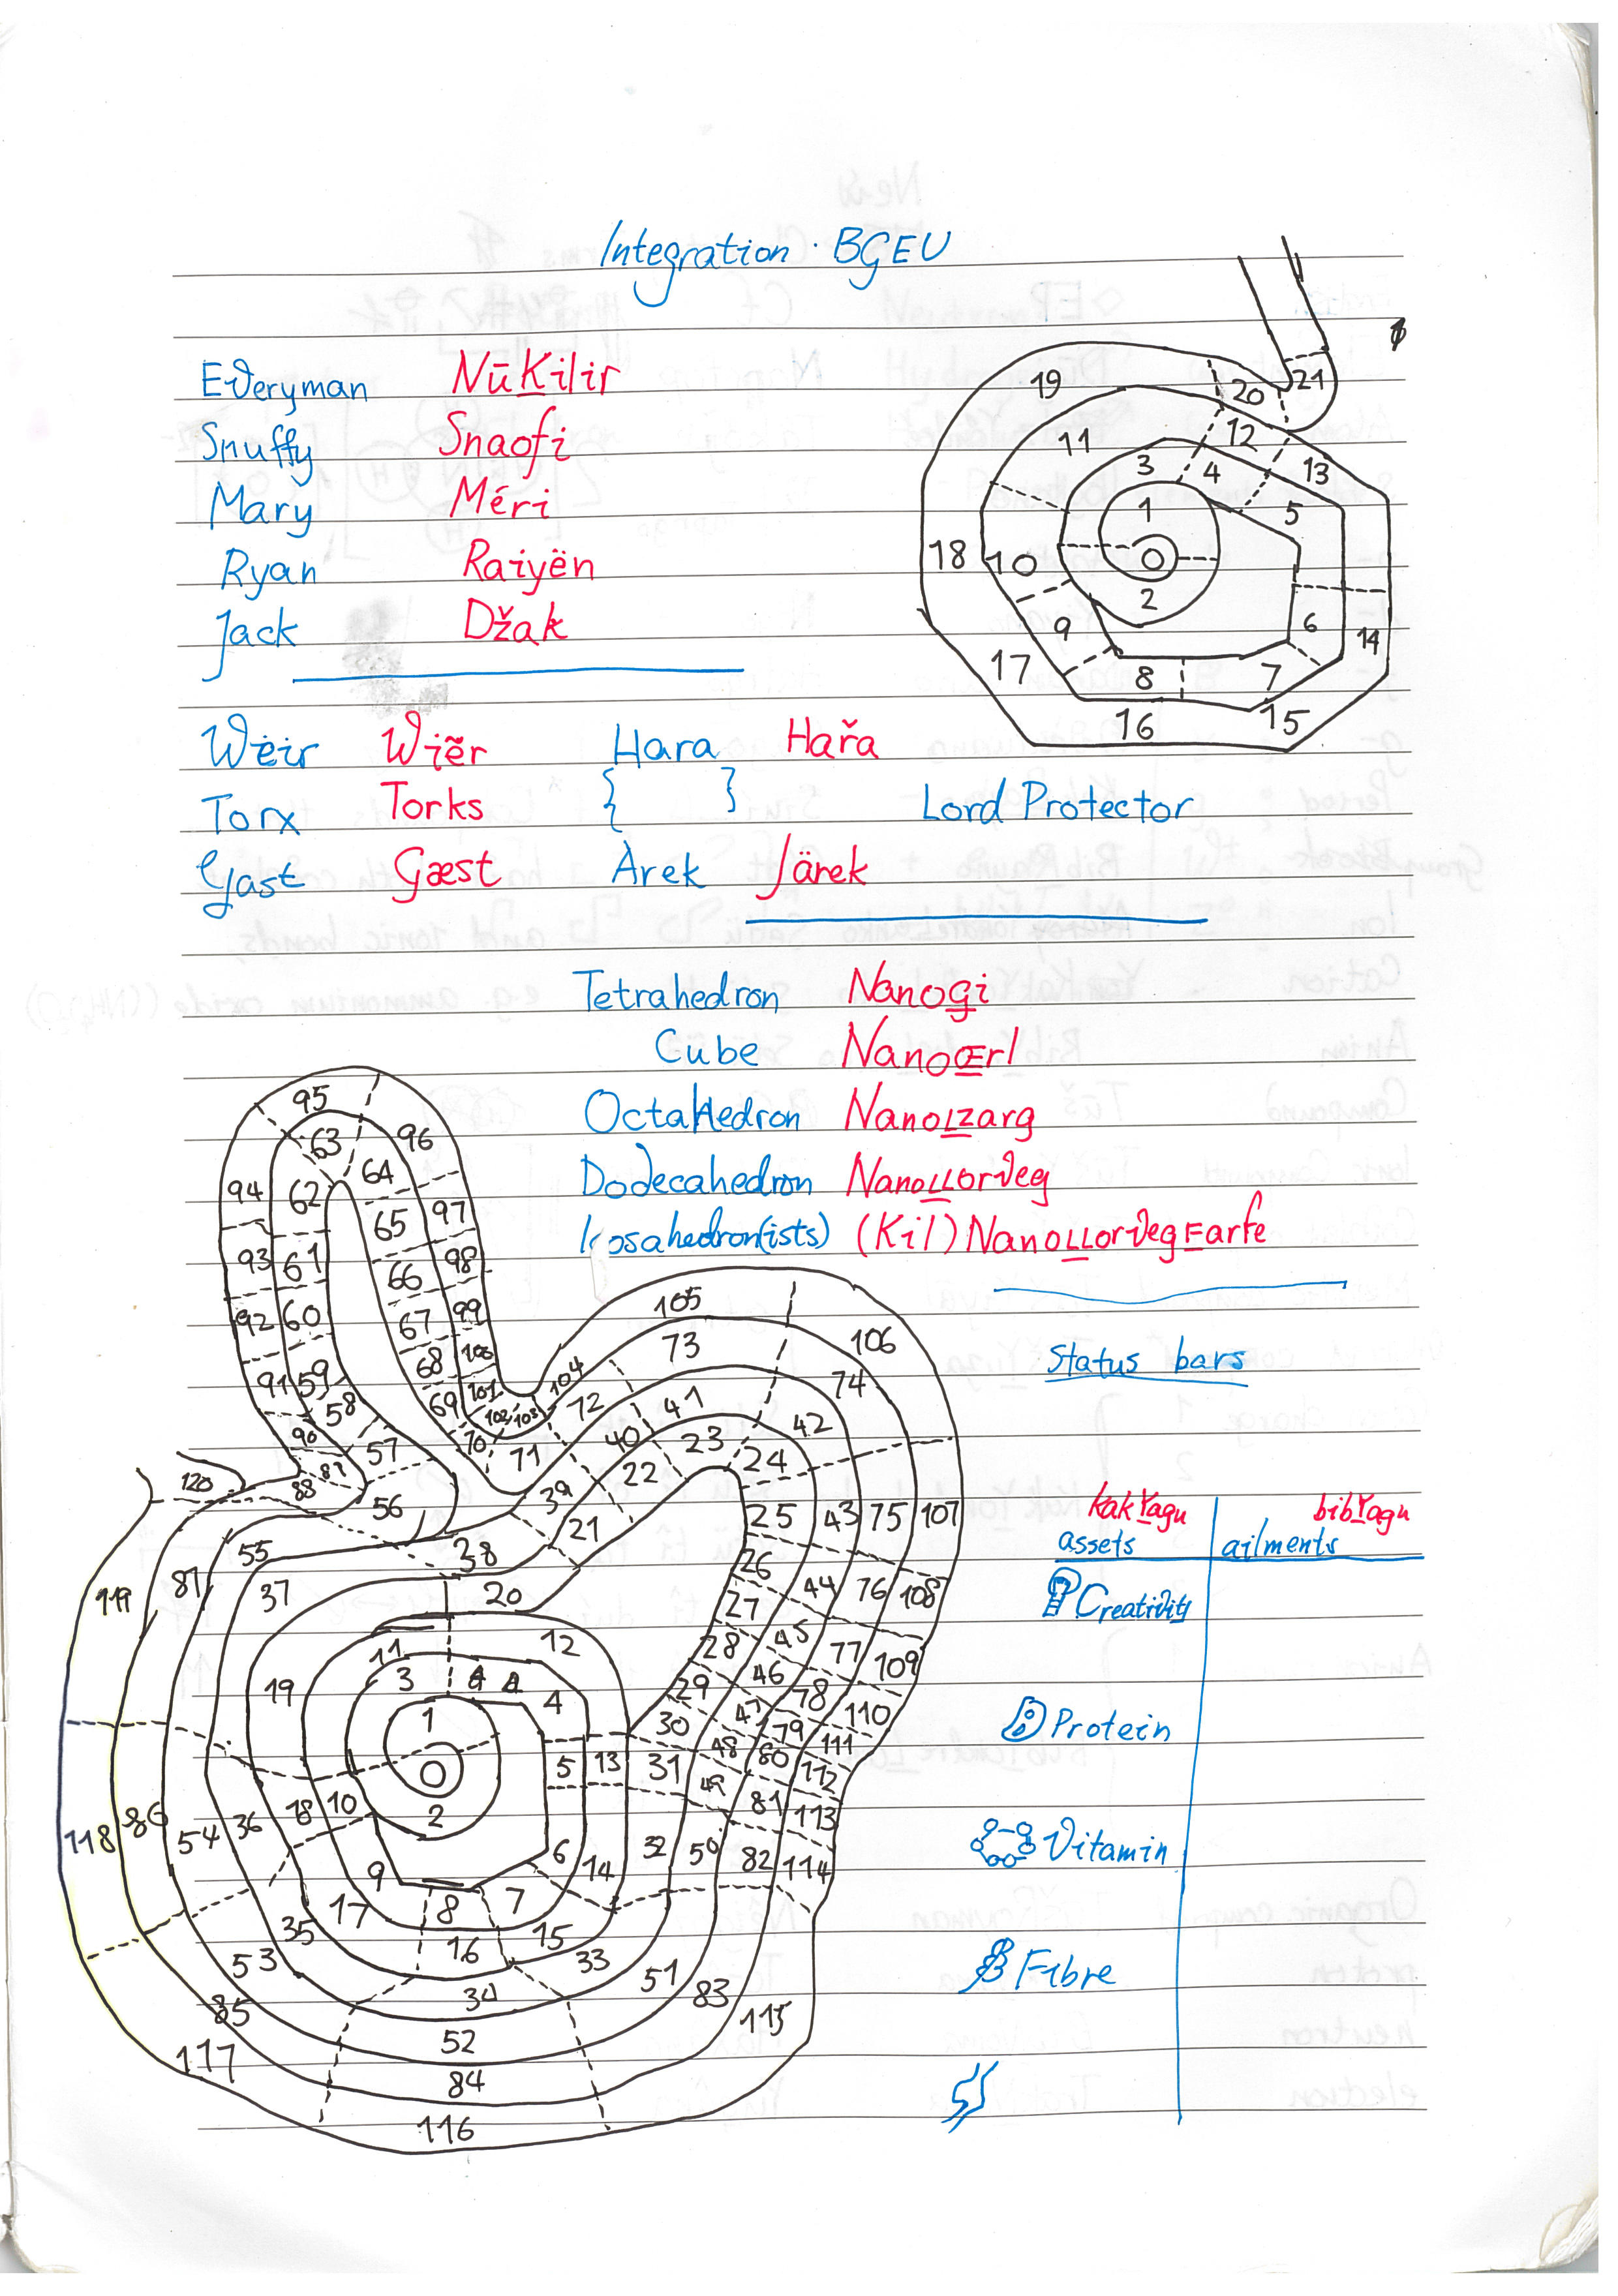 Integration · BGEU
Everyman NūKilir
Snuffy Snaofi
Mary Méri
Ryan Raiyën
Jack Džak
Wėir Wiẽr Hara Hařa
Torx Torks { } Lord Protector
Gast Gæst Àrek Järek
Tetrahedron Nanogi
Cube NanoŒrl
Octahedron NanoLzarg
Dodecahedron NanoLLorveg
Icosahedron(ists) (Kil)NanoLLorvegFarfe
Status bars
kakYagu bibYagu
assets ailments
Creativity
Protein
Vitamin
Fibre
0
1
2
3
4
5
6
7
8
9
10
11
12
13
14
15
16
17
18
19
20
21
0
1
2
3
4
5
6
7
8
9
10
11
12
13
14
15
16
17
18
19
20
21
22
23
24
25
26
27
28
29
30
31
32
33
34
35
36
37
38
39
40
41
42
43
44
45
46
47
48
49
50
51
52
53
54
55
56
57
58
59
60
61
62
63
64
65
66
67
68
69
70
71
72
73
74
75
76
77
78
79
80
81
82
83
84
85
86
87
88
89
90
91
92
93
94
95
96
97
98
99
100
101
102
103
104
105
106
107
108
109
110
111
112
113
114
115
116
117
118
119
120